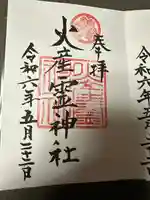 奉拝
火産霊神社
令和六年五月二十二日
令和六年五月二